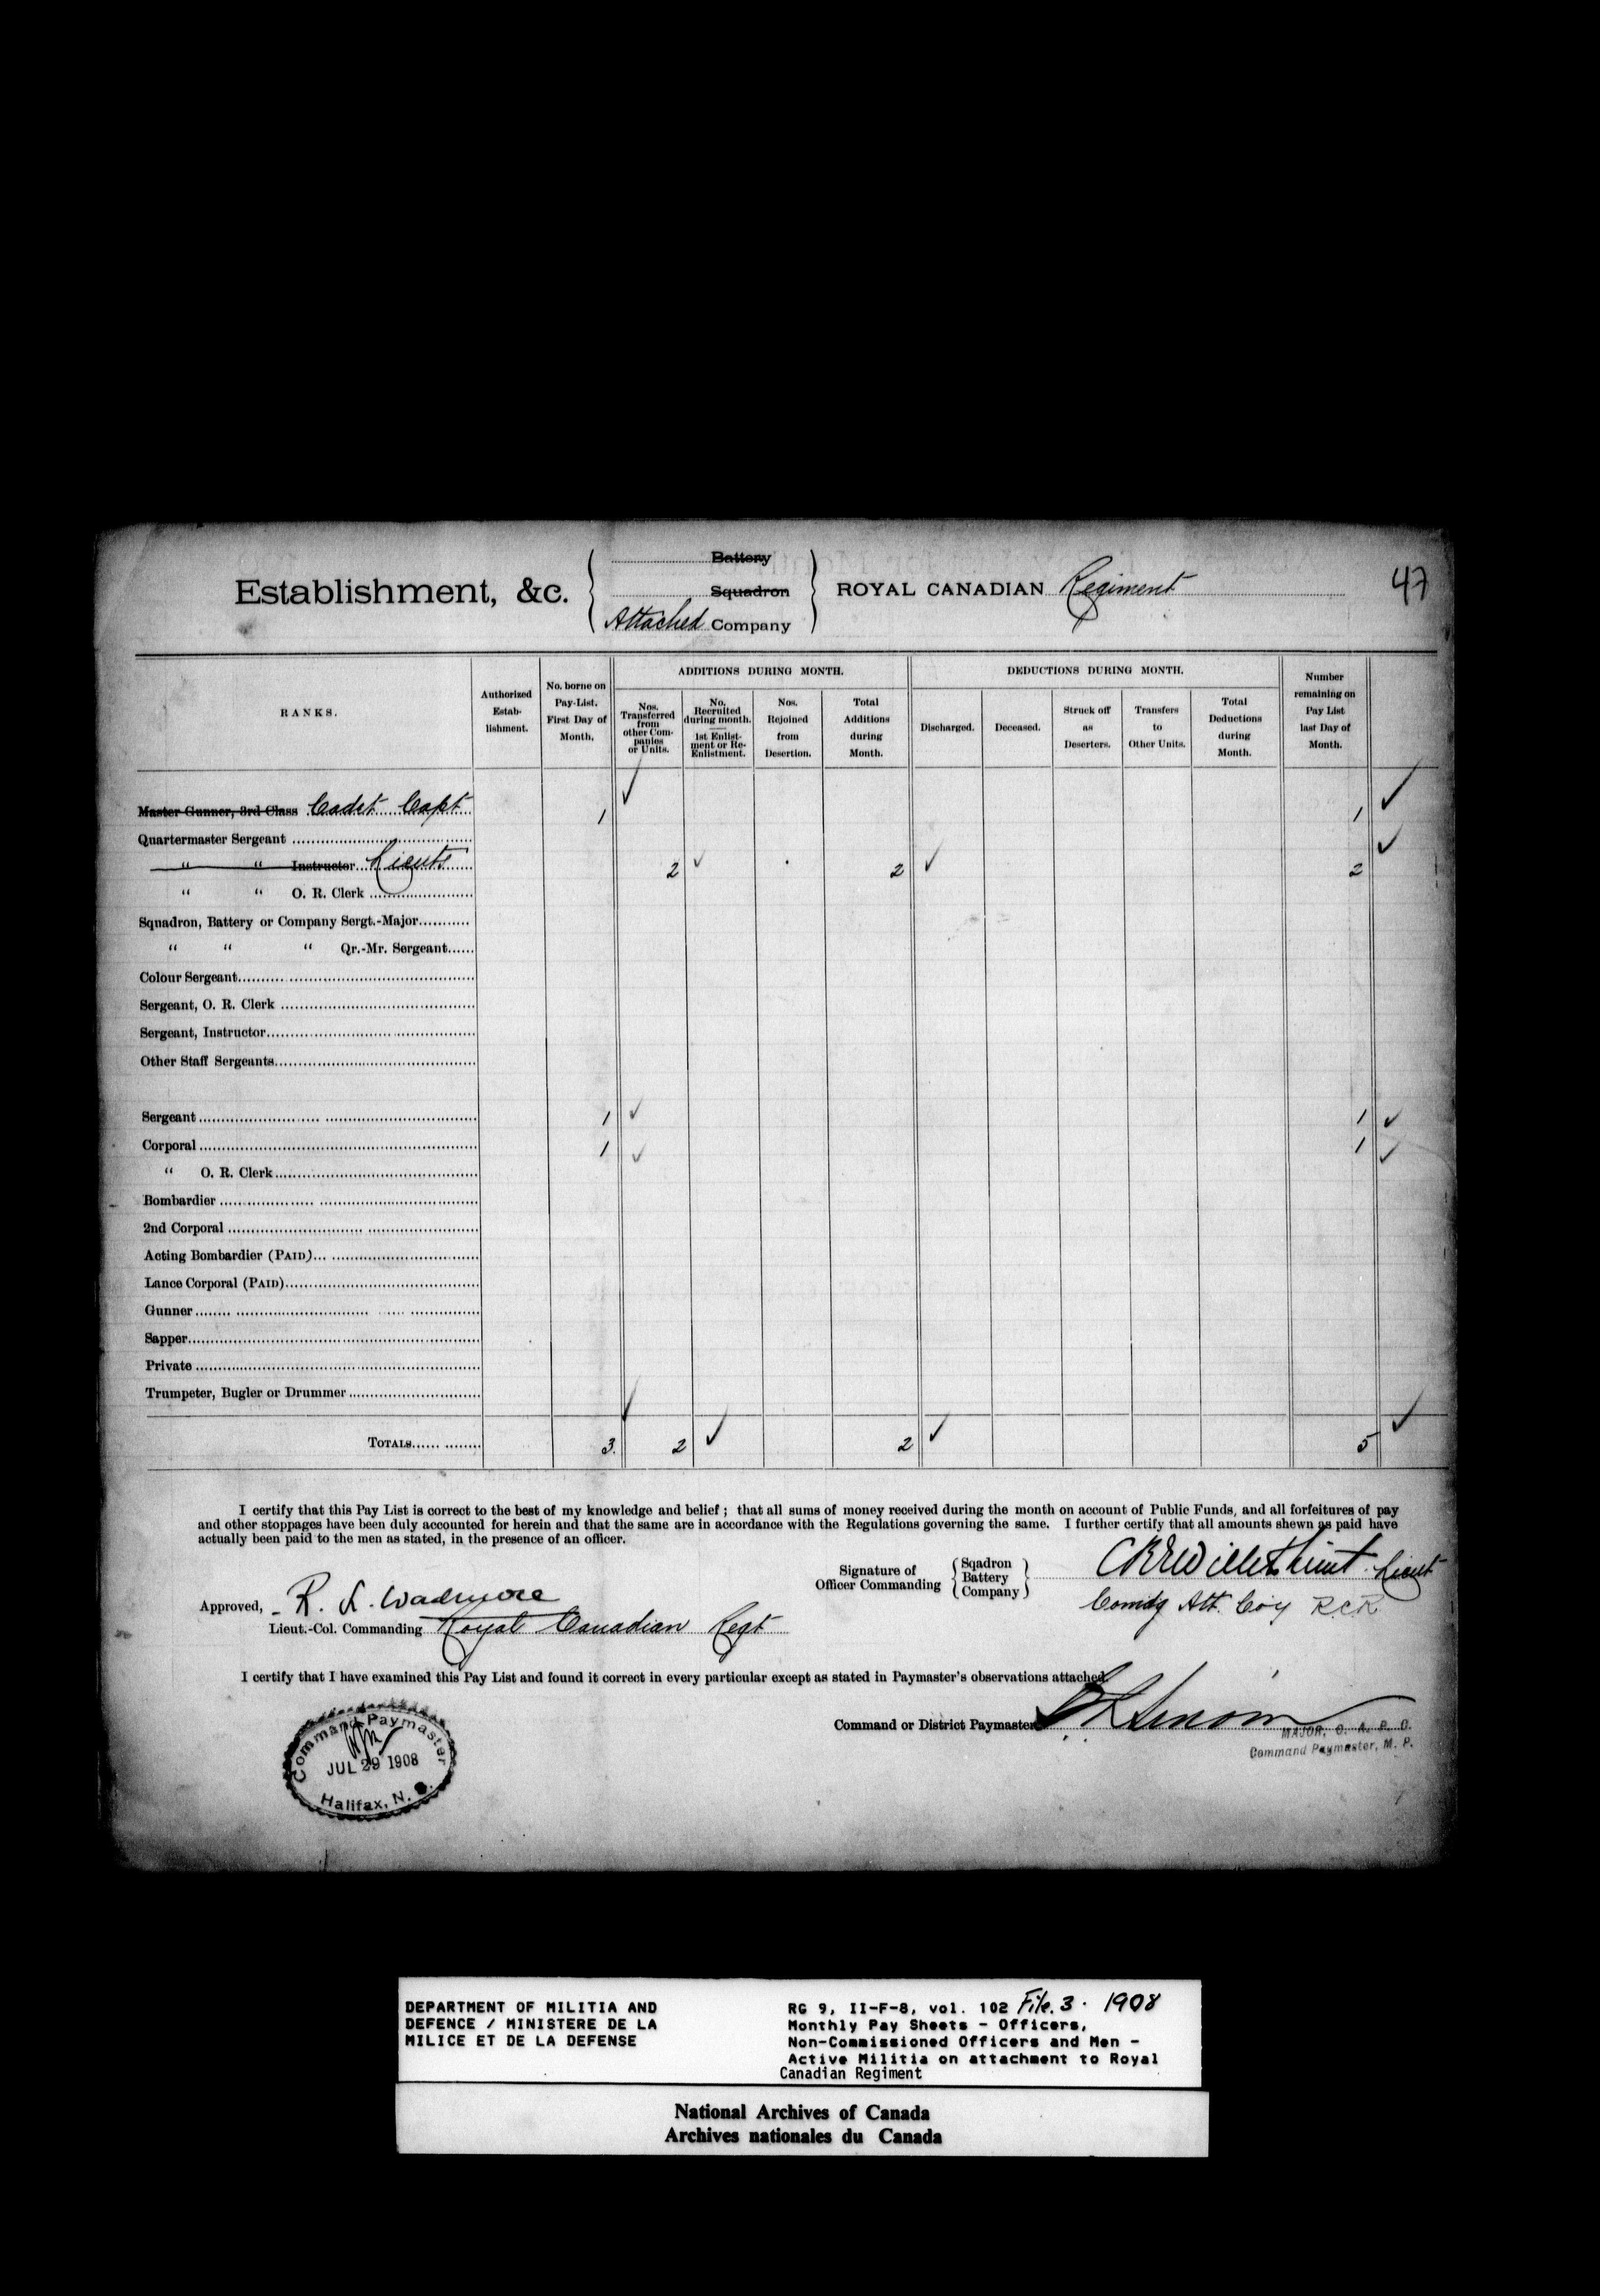 Battery
Establishment, &c. Squadron ROYAL CANADIAN Regiment 47
Attached Company
RANKS.
Authorized Establishment.
No. borne on Pay-List. First Day of Month.
ADDITIONS DURING MONTH.
Nos. Transferred from other Companies or Units.
No. Recruited during month. 1st Enlistment or Re-Enlistment.
Nos. Rejoined from Desertion.
Total Additions during Month.
DEDUCTIONS DURING MONTH.
Discharged.
Deceased.
Struck off as Deserters.
Transfers to Other Units.
Total Deductions during Month.
Number remaining on Pay List last Day of Month.
Master Gunner, 3rd Class Cadet Capt 1 ✓ 1 ✓
Quartermaster Sergeant ✓
" " Instructor Lieuts 2 ✓ 2 ✓ 2
" " O. R. Clerk
Squadron, Battery or Company Sergt.-Major
" " " Qr.-Mr. Sergeant
Colour Sergeant
Sergeant, O. R. Clerk
Sergeant, Instructor
Other Staff Sergeants
Sergeant 1 ✓ 1 ✓
Corporal 1 ✓ 1 ✓
" O. R. Clerk
Bombardier
2nd Corporal
Acting Bombardier (PAID)
Lance Corporal (PAID)
Gunner
Sapper
Private
Trumpeter, Bugler or Drummer
TOTALS 3. ✓ 2 ✓ 2 ✓ 5 ✓
I certify that this Pay List is correct to the best of my knowledge and belief; that all sums of money received during the month on account of Public Funds, and all forfeitures of pay
and other stoppages have been duly accounted for herein and that the same are in accordance with the Regulations governing the same. I further certify that all amounts shewn as paid have
actually been paid to the men as stated, in the presence of an officer.
Signature of Officer Commanding { Sqadron Battery Company } Lieut
Comdg Att. Coy R.C.R
Approved, R. L. Wadmore
Lieut.-Col. Commanding Royal Canadian Regt
I certify that I have examined this Pay List and found it correct in every particular except as stated in Paymaster's observations attached.
Command or District Paymaster
MAJOR, C. A. P. C.
Command Paymaster, M. P.
Command Paymaster
JUL 29 1908
Halifax, N. S.
DEPARTMENT OF MILITIA AND
DEFENCE / MINISTERE DE LA
MILICE ET DE LA DEFENSE
RG 9, II-F-8, vol. 102 File. 3. 1908
Monthly Pay Sheets - Officers,
Non-Commissioned Officers and Men -
Active Militia on attachment to Royal
Canadian Regiment
National Archives of Canada
Archives nationales du Canada